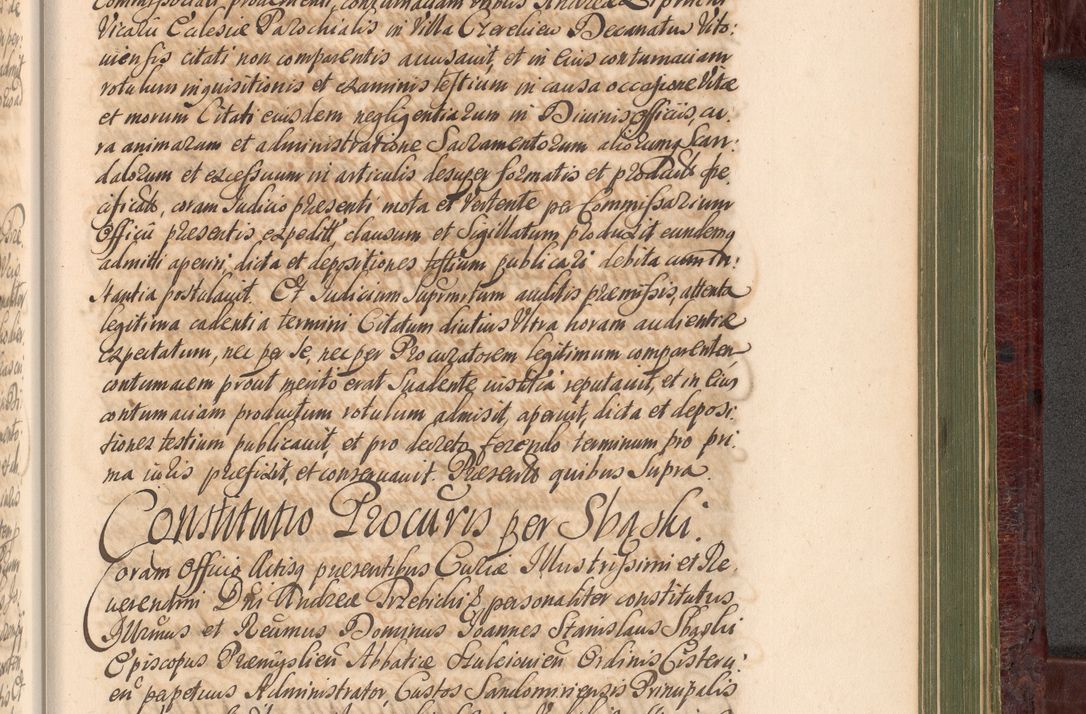 Vicarii Ecclesiæ Parochialis in Villa Czerelice Decanatus Vito:
uiensis citati non comparentis accusauit, et in eius contumaciam
rotulum inquisitionis et examinis testium in causa occasione Vitæ
et morum Citati eiusdem negligentiarum in Diuinis officijs, cu,
ra animarum et administratione Sacramentorum aliorumq Scan:
dalorum et excessuum in articulis desuper formatis et productis spe,
cificato, coram Judicio præsenti mota et Vertente per Commissarium
Officij præsentis expedit clausum et Sigillatum produxit eundemq
admitti aperiri, dicta et depositiones testium publicari debita cum in:
stantia postulauit. Et Judicium Suprnitum auditis præmissis, attenta
legitima cadentia termini Citatum diutius Vltra horam audientiæ
expectatum, nec per se, nec per Procuratorem legitimum comparenten
contumacem prout merito erat Suadente iustitia reputauit, et in Eius
contumaciam productum rotulum admisit, aperuit, dicta et deposi,
tiones testium publicauit, et pro decreto ferendo terminum pro pri:
ma iuris præfixit, et conseruauit. Præsente quibus Supra.
Constitutio Procuris per Sbąski.
Coram Officio Actisq præsentibus Curiæ Illustrissimi et Re,
uerendmi Dni Andreæ Trzebicki & personaliter constitutus
Illrmus et Reumus Dominus Joannes Stanislaus Sbąski
Episcopus Præmyslien Abbatiæ Suleiouien Ordinis Cisterci:
en perpetuus Administrator, Custos Sandomiriensis Principalis